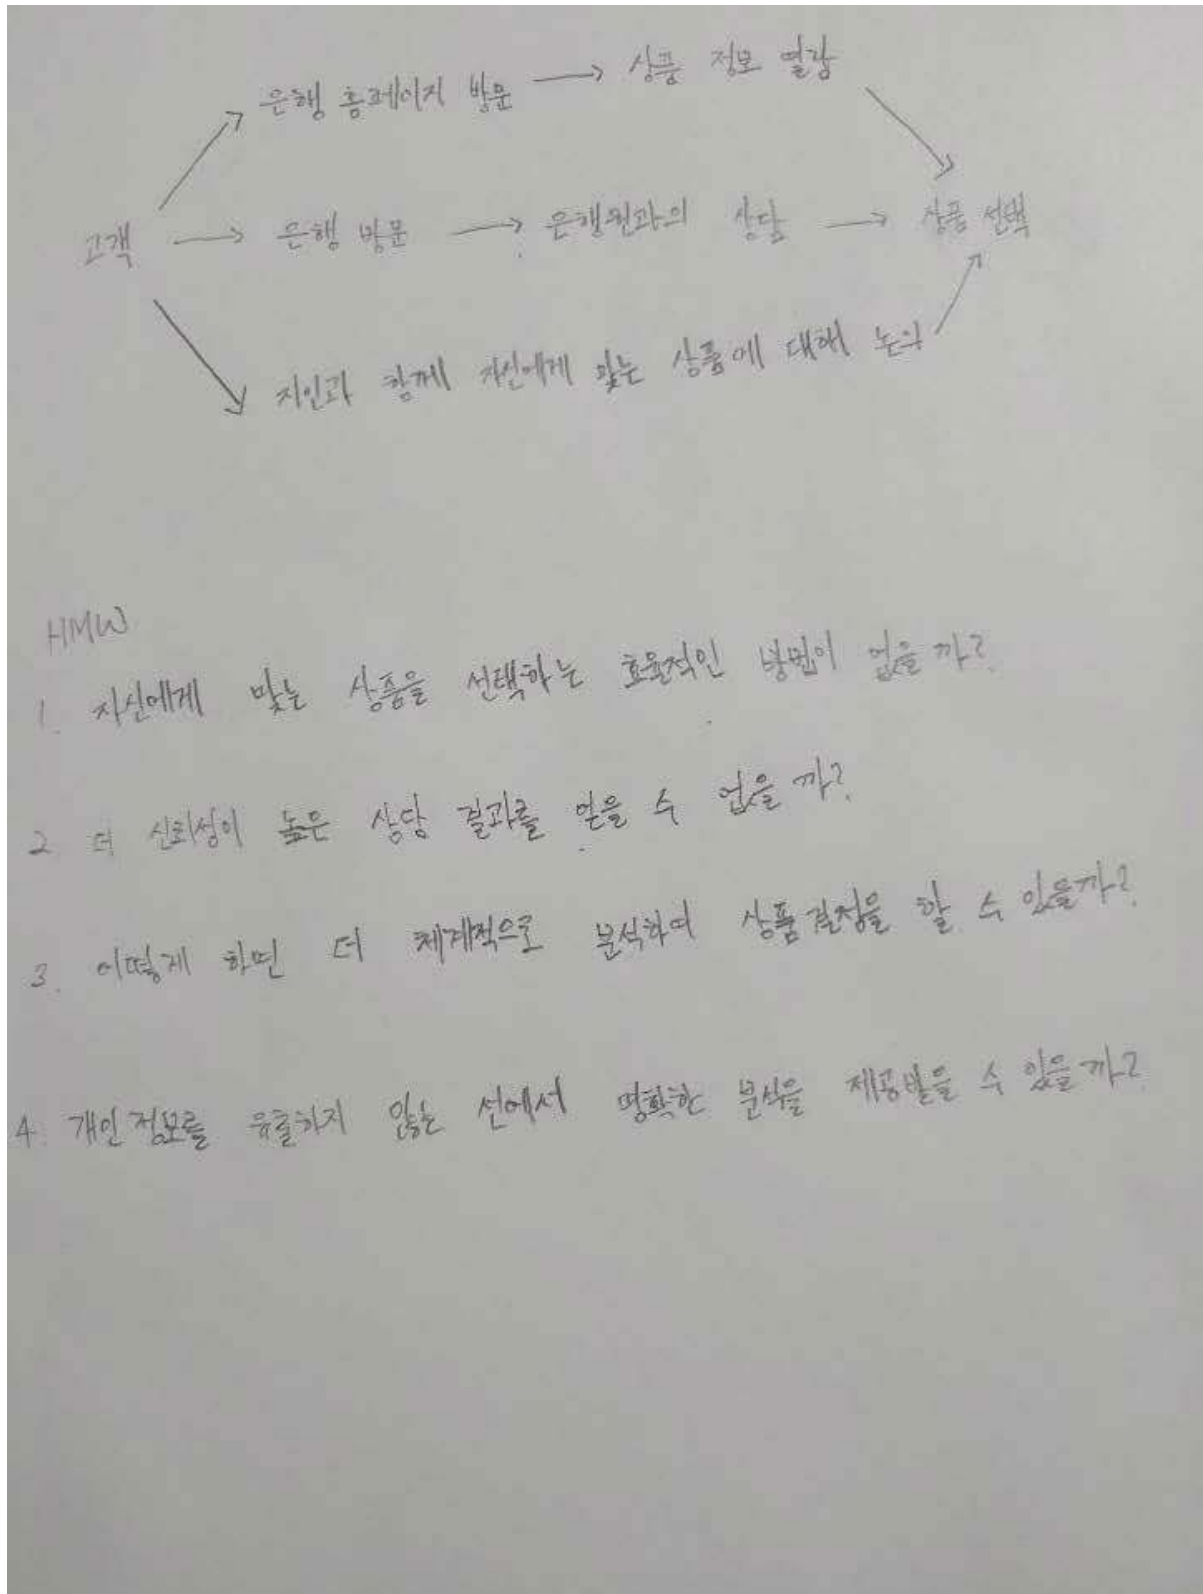 은행 홈페이지 방문 → 상품 정보 열람
고객 → 은행 방문 → 은행원과의 상담 → 상품 선택
지인과 함께 자신에게 맞는 상품에 대해 논의
HMW
1. 자신에게 맞는 상품을 선택하는 효율적인 방법이 없을까?
2. 더 신뢰성이 높은 상담 결과를 얻을 수 없을까?
3. 어떻게 하면 더 체계적으로 분석하여 상품결정을 할 수 있을까?
4. 개인정보를 유출하지 않는 선에서 명확한 분석을 제공받을 수 있을까?